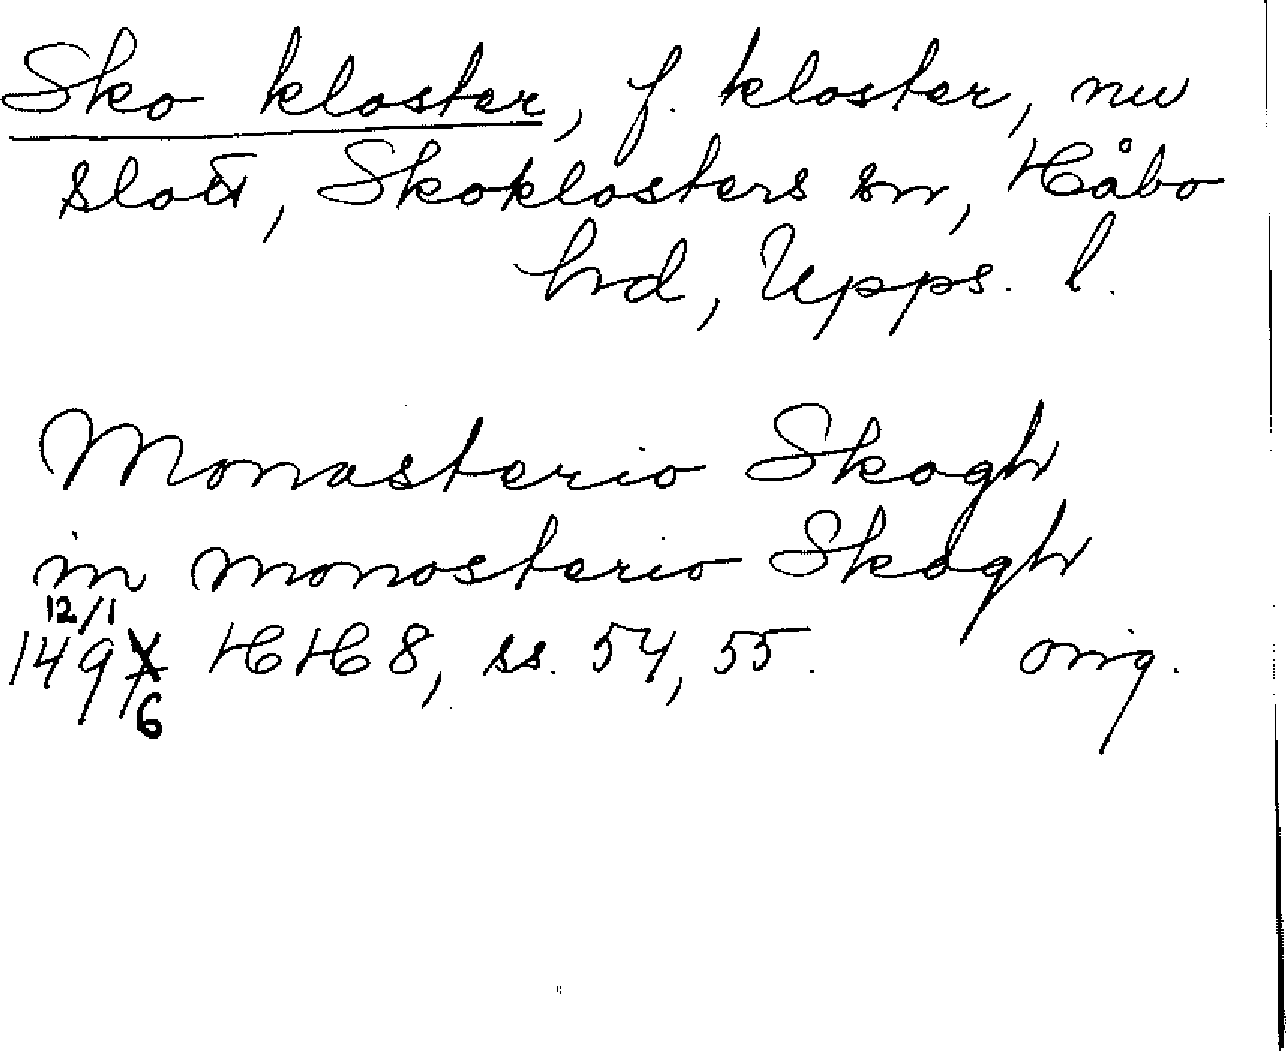 Sko kloster, f. kloster, nu
slott, Skoklosters sn, Håbo
hd, Upps. l.
Monasterio Skogh
in monasterio Skogh
12/1
1496 HH 8, ss. 54, 55. orig.